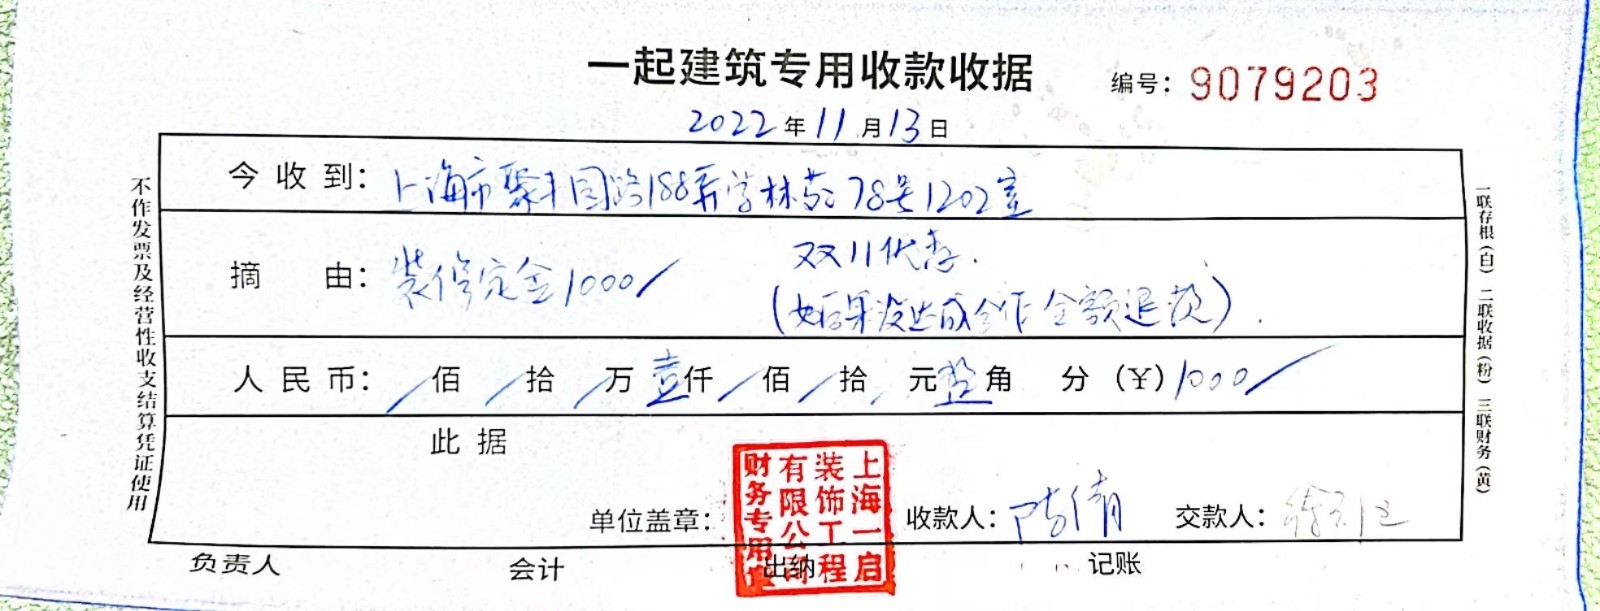 一起建筑专用收款收据
编号：9079203
2022年11月13日
今收到：上海市聚丰园路188弄学林苑78号1202室
摘由：装修定金1000/
双11优惠.
(如后果没达成合作全额退款).
人民币：/佰/拾/万壹仟/佰/拾/元整角 分（￥）1000/
此据
单位盖章：
收款人：陈倩
交款人：
上海一启
装饰工程
有限公司
财务专用章
负责人 会计 出纳 记账
不作发票及经营性收支结算凭证使用
一联存根（白） 二联收据（粉） 三联财务（黄）